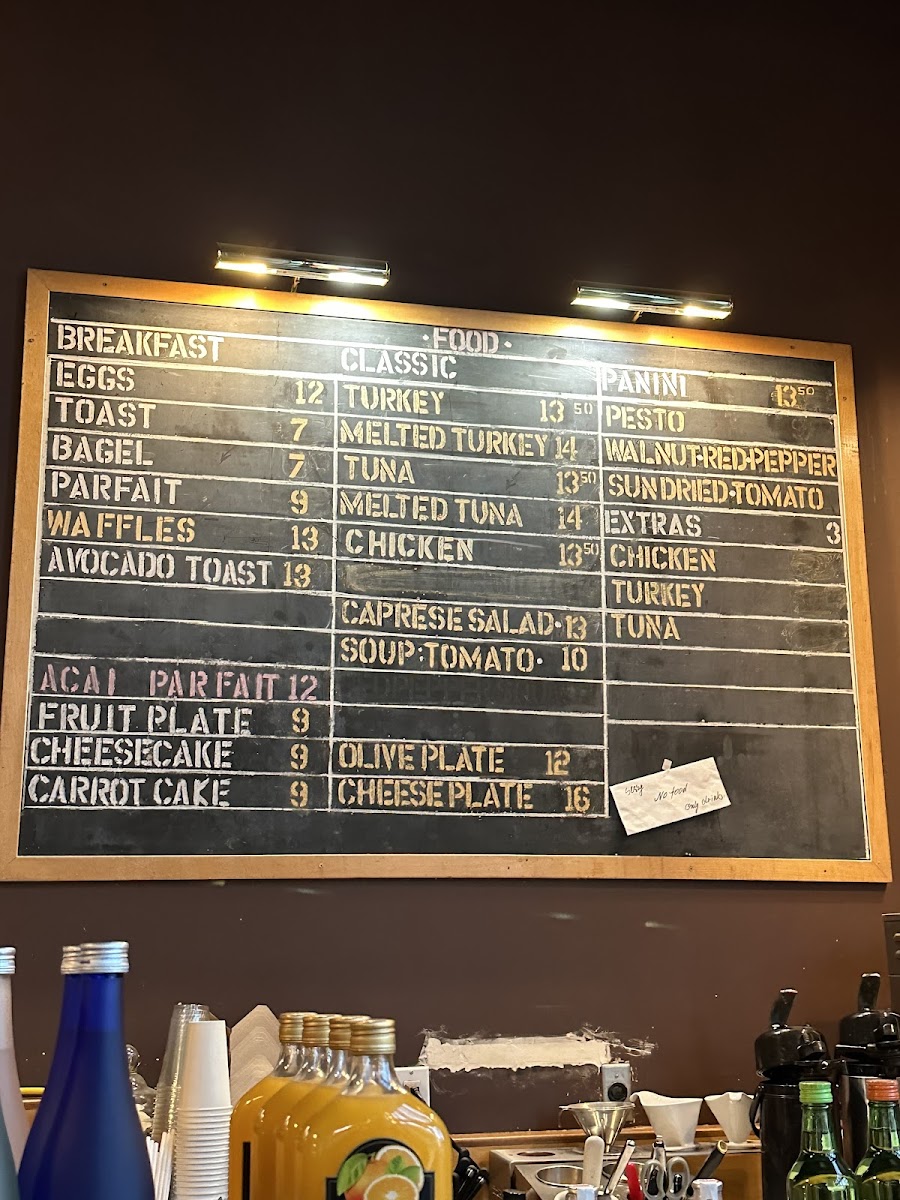 ·FOOD·
BREAKFAST
EGGS 12
TOAST 7
BAGEL 7
PARFAIT 9
WAFFLES 13
AVOCADO TOAST 13
ACAI PARFAIT 12
FRUIT PLATE 9
CHEESECAKE 9
CARROT CAKE 9
CLASSIC
TURKEY 13 50
MELTED TURKEY 14
TUNA 13 50
MELTED TUNA 14
CHICKEN 13 50
CAPRESE SALAD· 13
SOUP:TOMATO· 10
OLIVE PLATE 12
CHEESE PLATE 16
PANINI 13 50
PESTO
WALNUT·RED·PEPPER
SUNDRIED·TOMATO
EXTRAS 3
CHICKEN
TURKEY
TUNA
No food
only drinks